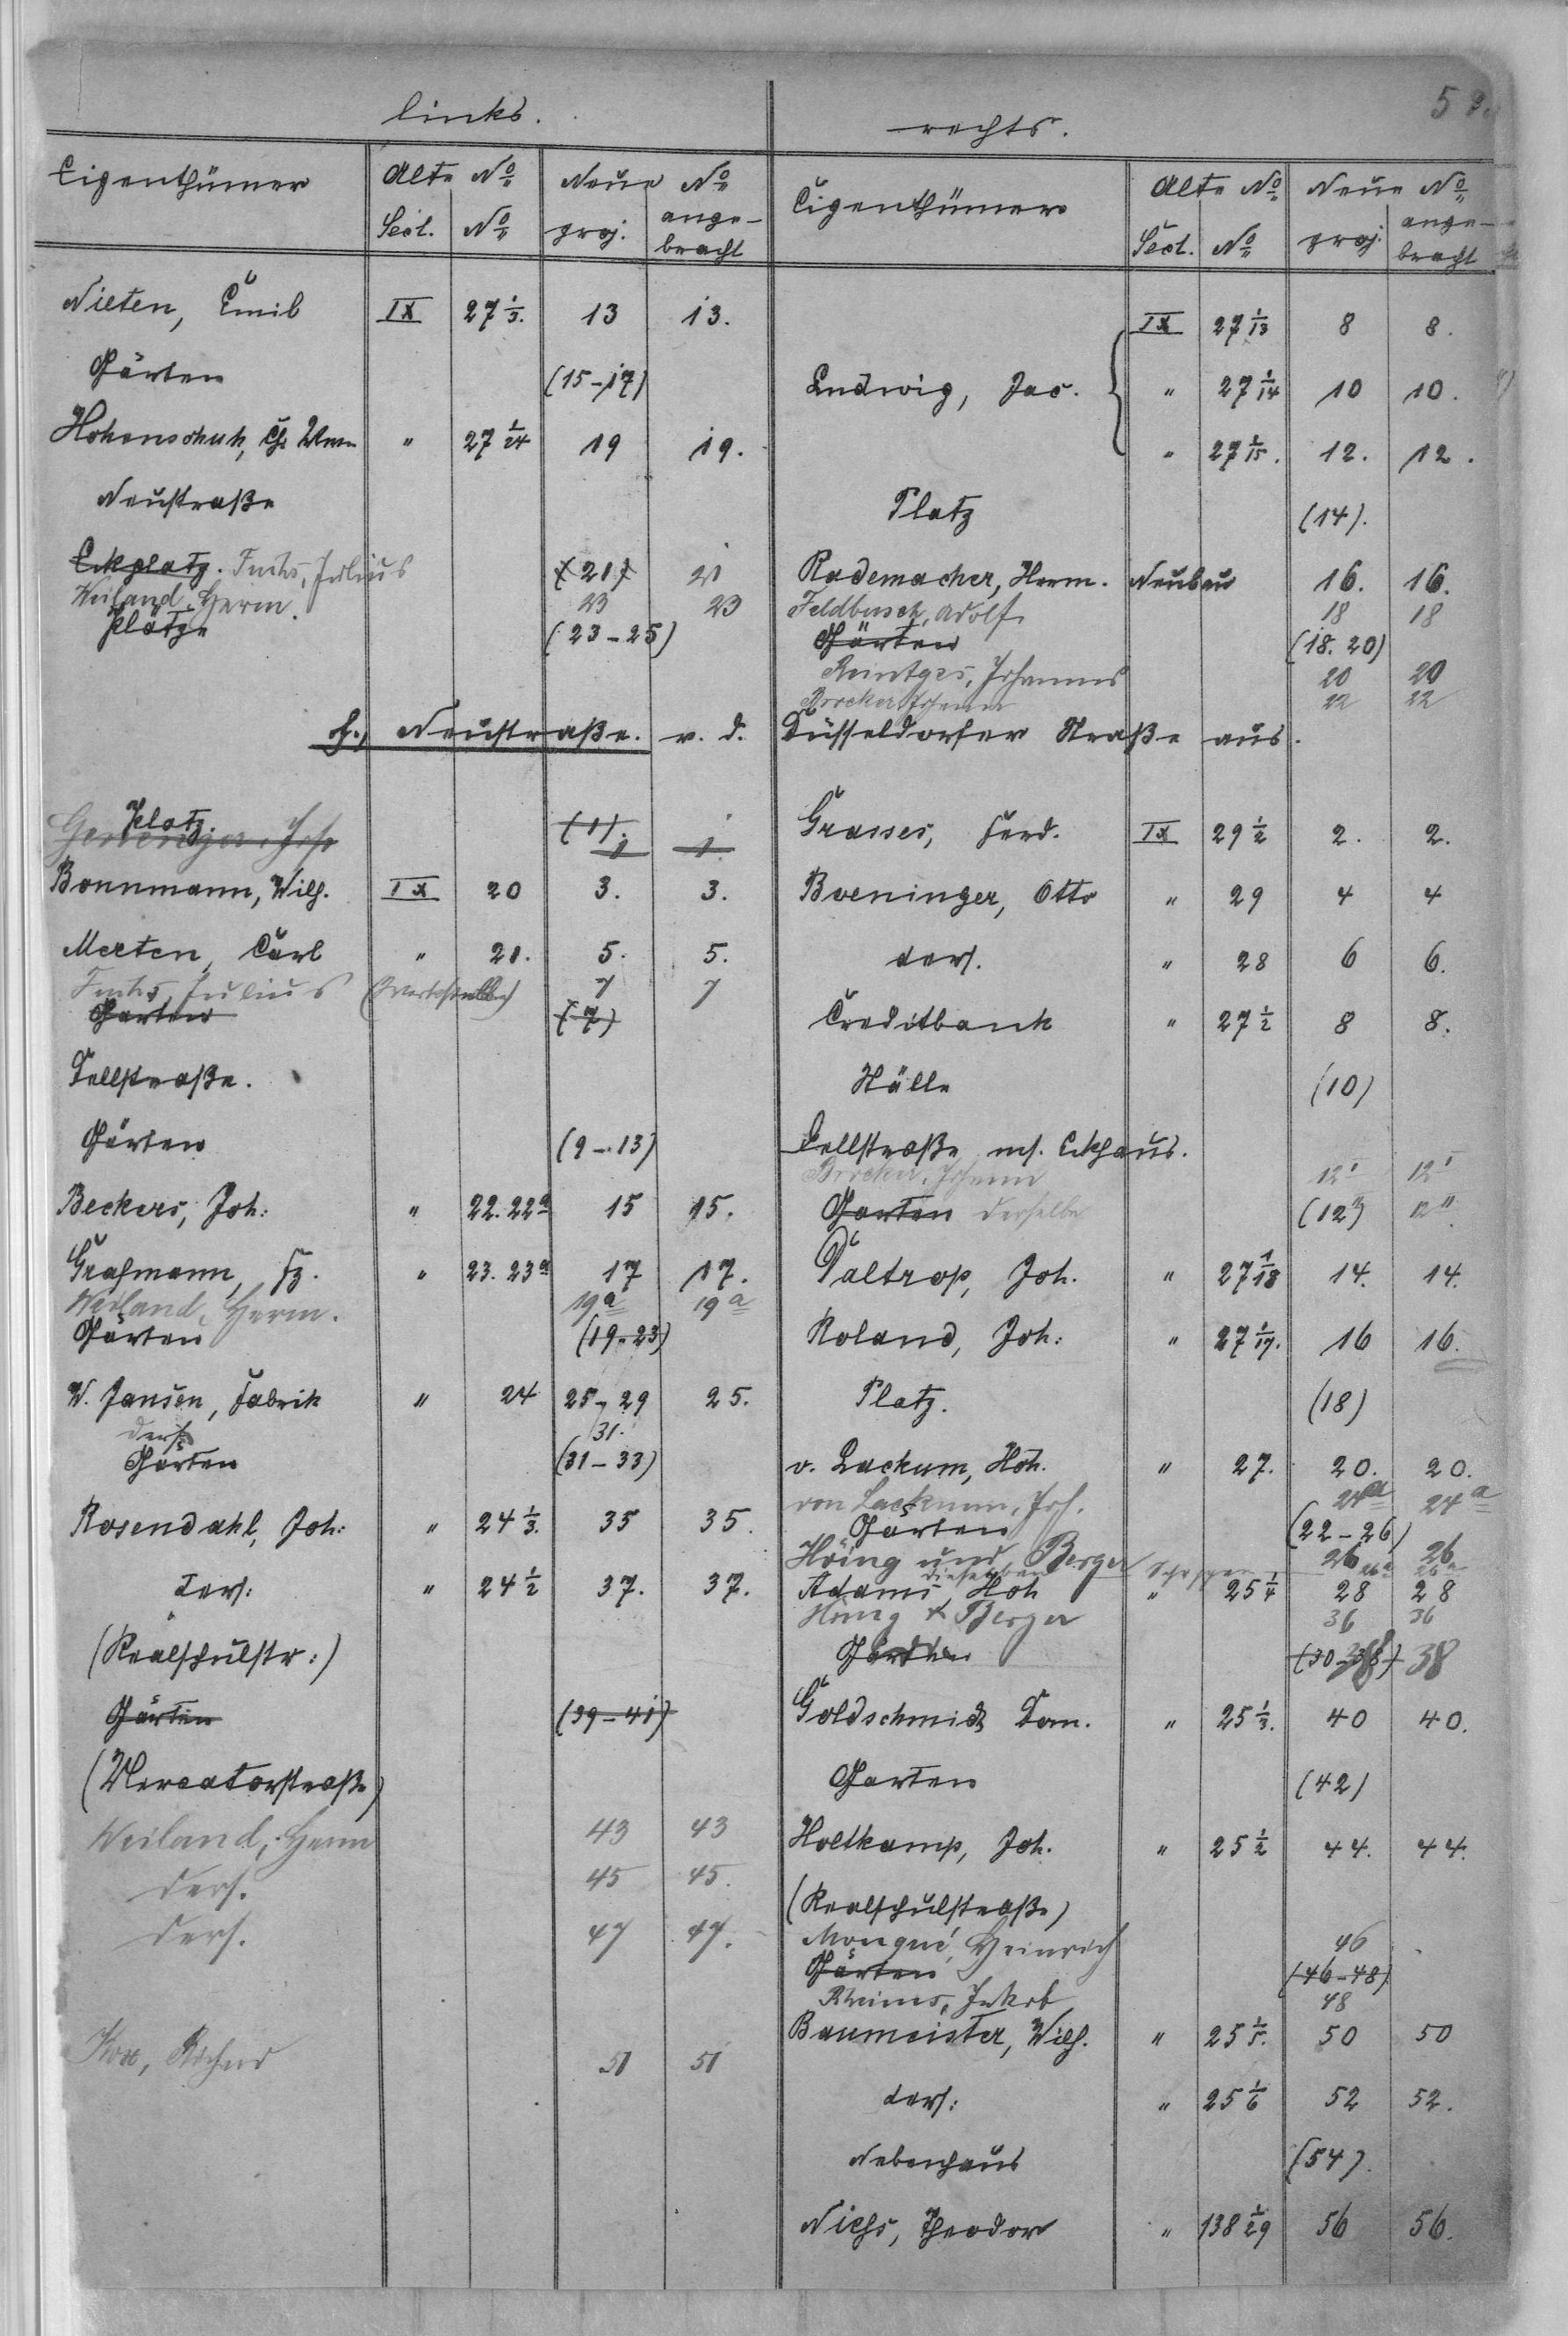 links. rechts.
Eigenthümer Alte No Neue No Eigenthümer Alte No Neue No
Sect. No proj. ange- Sect. No proj. ange-
bracht bracht
Nieten, Emil IX 27 1/3. 13 13. IX 27 1/13 8 8.
Gärten (15-17) Ludwig, Jac. " 27 1/14 10 10.
Hohenschuh, " 27 1/24 19 19. " 27 1/15. 12. 12.
Neustraße Platz (14).
Eckplatz. Fuchs, Julius (21) 21 Rademacher, Herm. Neubau 16. 16.
Weiland, Herm. 23 23 Feldbusch, Adolf 18 18
Plätze (23-25) Gärten (18. 20)
Reintges, Johannes 20 20
Johann 22 22
f., Neustraße. v. d. Düsseldorfer Straße aus.
Platz. (1). Grasses, Ferd. IX 29 1/2 2. 2.
1 1.
Bonnmann, Wilh. IX 20 3. 3. Boeninger, Otto " 29 4 4
Merten, Carl " 21. 5. 5. ders. " 28 6 6.
Fuchs, Julius (Werkstelle) 7 7
Garten (7) Creditbank " 27 1/2 8 8.
Dellstraße. Ställe (10)
Gärten (9-13) Dellstraße mf. Eckhaus.
Johann 12I 12I
Beckers, Joh: " 22. 22a 15 15. Garten derselbe (12) 12II
Grafmann, Fz. " 23. 23a 17 17. Daltrop, Joh. " 27 1/18 14. 14.
Weiland, Herm. 19a 19a
Gärten (19-23) Roland, Joh: " 27 1/17. 16 16.
W. Jansen, Fabrik " 24 25-29 25. Platz. (18)
ders. 31.
Gärten (31-33) v. Lackum, Hch. " 27. 20. 20.
von Lackum, Joh. 24a 24a
Rosendahl, Joh: " 24 1/3. 35 35. Gärten (22-26)
Höing und Berger 26 26
dieselben 26a 26a
ders: " 24 1/2 37. 37. Adams, Hch " 25 1/4 28 28
Höing & Berger 36 36
(Realschulstr:) Gärten (30-38) 38
Gärten (39-41) Goldschmidt Dan. " 25 1/3. 40 40.
(Mercatorstraße) Garten (42)
Weiland, Herm 43 43 Holtkamp, Joh. " 25 1/2 44. 44.
ders. 45 45. (Realschulstraße)
ders. 47 47. Monqué, Heinrich 46
Gärten (46-48)
Rheims, Jakob 48
Baumeister, Wilh. " 25 1/5. 50 50
Richard 51 51
ders: " 25 1/6 52 52.
Nebenhaus (54).
Niehs, Theodor " 138 1/29 56 56.